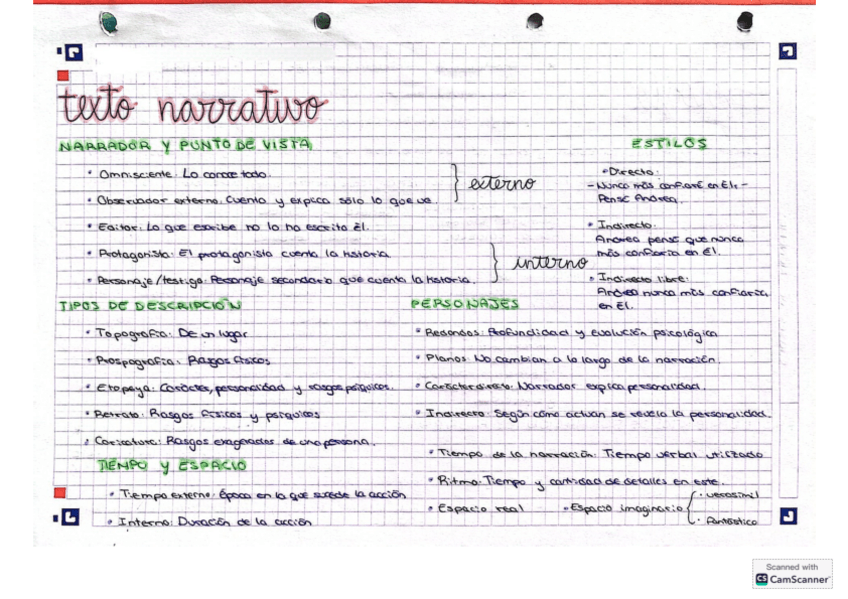 texto narrativo
NARRADOR Y PUNTO DE VISTA
• Omnisciente: Lo conoce todo.
• Observador externo: Cuenta y explica sólo lo que ve.
externo
• Editor: Lo que escribe no lo ha escrito él.
• Protagonista: El protagonista cuenta la historia.
• Personaje/testigo: Personaje secundario que cuenta la historia.
interno
ESTILOS
• Directo:
– Nunca más confiaré en él –
Pensó Andrea.
• Indirecto:
Andrea pensó que nunca
más confiaría en él.
• Indirecto libre:
Andrea nunca más confiaría
en él.
TIPOS DE DESCRIPCIÓN
• Topografía: De un lugar
• Prospografía: Rasgos físicos
• Etopeya: Carácter, personalidad y rasgos psíquicos.
• Retrato: Rasgos físicos y psíquicos
• Caricatura: Rasgos exagerados de una persona.
PERSONAJES
• Redondos: Profundidad y evolución psicológica
• Planos: No cambian a lo largo de la narración.
• Carácter directo: Narrador explica personalidad.
• Indirecto: Según cómo actúan se revela la personalidad.
TIEMPO Y ESPACIO
• Tiempo externo: Época en la que sucede la acción
• Interno: Duración de la acción
• Tiempo de la narración: Tiempo verbal utilizado
• Ritmo: Tiempo y cantidad de detalles en este.
• Espacio real
• Espacio imaginario
• verosímil
• Fantástico
Scanned with
CS CamScanner